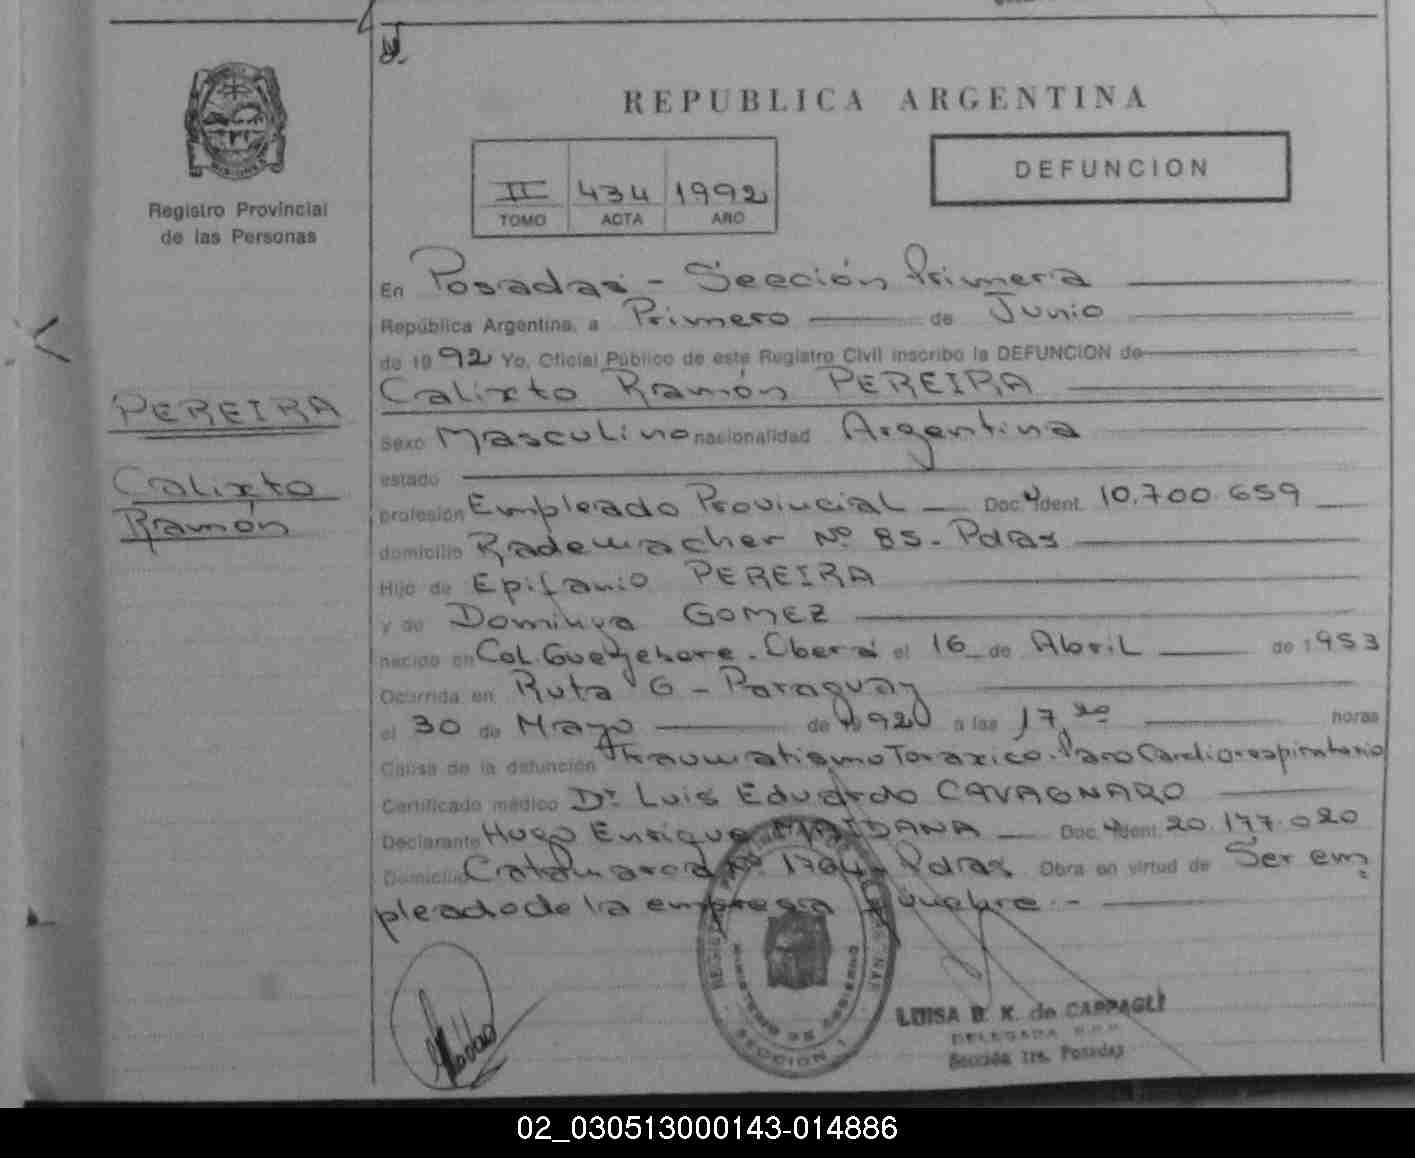 REPUBLICA ARGENTINA
DEFUNCION
II 434 1992
TOMO ACTA AÑO
Registro Provincial
de las Personas
PEREIRA
Calixto
Ramón
En Posadas - Sección Primera
República Argentina, a Primero de Junio
de 1992 Yo, Oficial Público de este Registro Civil inscribo la DEFUNCION de
Calixto Ramón PEREIRA
Sexo Masculino nacionalidad Argentina
estado
profesión Empleado Provincial Doc. Ident. 10.700.659
domicilio Rademacher Nº 85 - Pdas
Hijo de Epifanio PEREIRA
y de Dominga GOMEZ
nacido en Col. Oberá el 16 de Abril de 1953
Ocurrida en Ruta 6 - Paraguay
el 30 de Mayo de 1992 a las 17 20 horas
Causa de la defunción Traumatismo Toráxico. Paro Cardiorespiratorio
Certificado médico Dr Luis Eduardo CAVAGNARO
Declarante Hugo Enrique MAIDANA Doc. Ident. 20.177.020
Domicilio Catamarca Nº 1764 - Pdas Obra en virtud de Ser em
pleado de la empresa fúnebre. -
LUISA B. K. de CAPPAGLI
DELEGADA
Sección 1ra. Posadas
SECCION 1
02_030513000143-014886